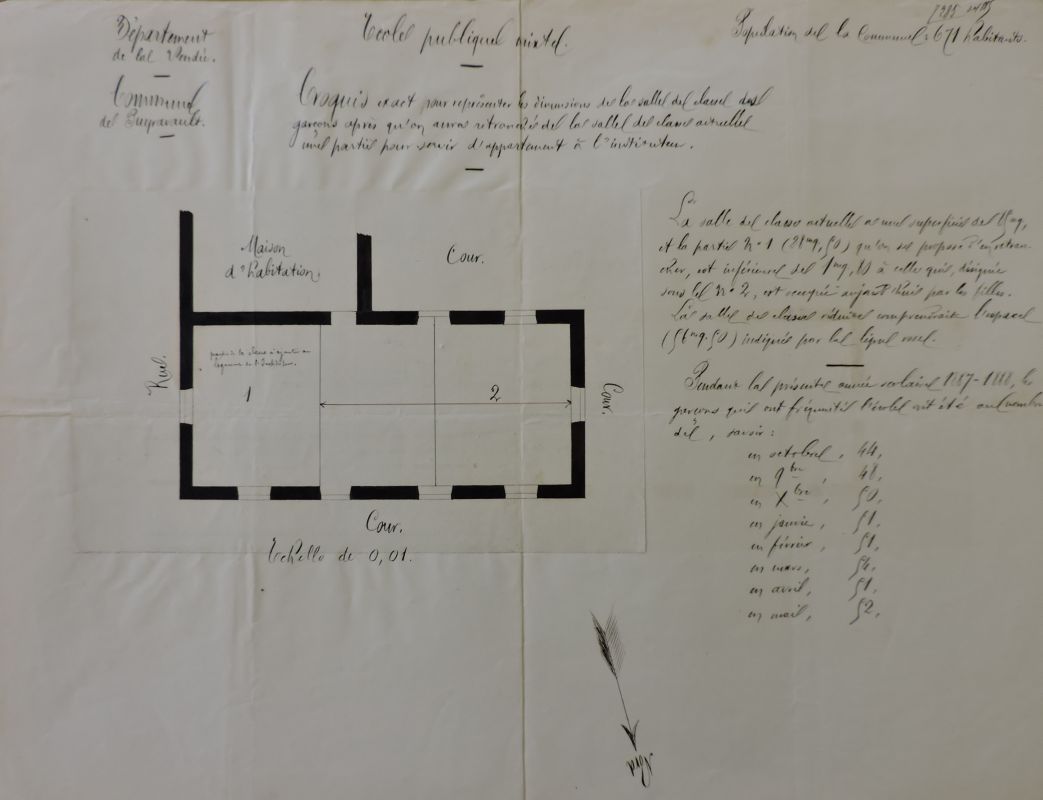 Département
de la Vendée.
Commune
de Puyravault.
Ecole publique mixte.
Population de la Commune : 671 habitants.
Croquis exact pour représenter les dimensions de la salle de classe des
garçons après qu'on aura retranché de la salle de classe actuelle
une partie pour servir d'appartement à l'instituteur.
La salle de classe actuelle a une superficie de
et la partie n° 1 (28mq,50) qu'on se propose d'en retran-
cher, est inférieure de à celle qui, désignée
sous le n° 2, est occupée aujourd'hui par les filles.
La salle de classe réduite comprendrait l'espace
(56mq.50) indiqué par la ligne
Pendant la présente année scolaire 1887-1888, les
garçons qui ont fréquenté l'école ont été au nombre
de, savoir :
en octobre, 44,
en 9bre, 48,
en Xbre, 50,
en janvier, 51,
en février, 51,
en mars, 54,
en avril, 51,
en mai, 52,
Maison
d'habitation.
Cour.
Rue.
partie de la classe à ajouter au
logement de l'Instituteur.
1
2
Cour.
Cour.
Echelle de 0,01.
Nord